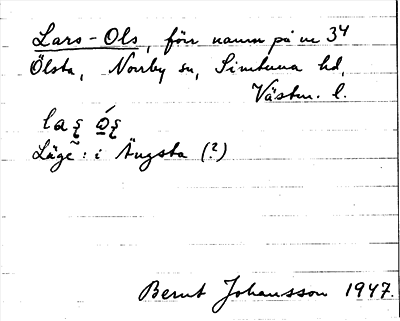 Lars-Ols, förr namn på nr 3⁴
Ölsta, Norrby sn, Simtuna hd,
Västm. l.
Läge: i Ängsta (?)
Bernt Johansson 1947.